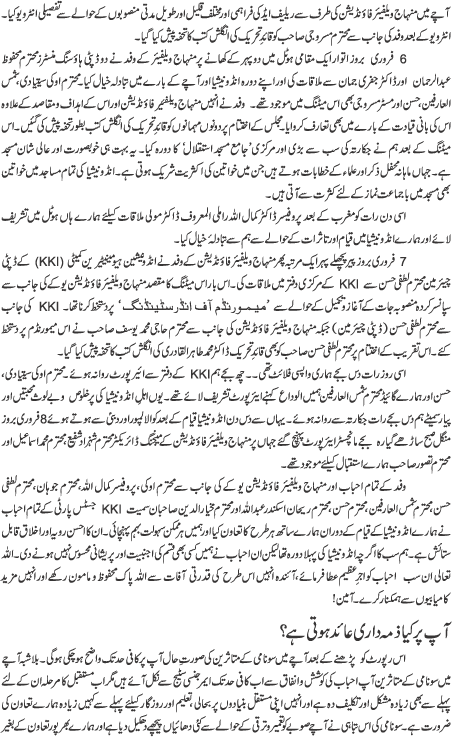 آچے میں منہاج ویلفیئر فاؤنڈیشن کی طرف سے ریلیف ایڈ کی فراہمی اور مختلف قلیل اور طویل مدتی منصوبوں کے حوالے سے تفصیلی انٹرویو کیا۔
انٹرویو کے بعد وفد کی جانب سے محترم مسروجی صاحب کو قائد تحریک کی انگلش کتب کا تحفہ پیش کیا گیا۔
6 فروری بروز اتوار ایک مقامی ہوٹل میں دوپہر کے کھانے پر منہاج ویلفیئر کے وفد نے دو ڈپٹی ہاؤسنگ منسٹرز محترم محفوظ
عبدالرحمان اور ڈاکٹر جعفری جمان سے ملاقات کی اور اپنے دورہ انڈونیشیا اور آچے کے بارے میں تبادلہ خیال کیا۔ محترم اوکی سیتیادی، شمس
العارفین، حسن اور مسٹر مسروجی بھی اس میٹنگ میں موجود تھے۔ وفد نے انہیں منہاج ویلفیئر فاؤنڈیشن اور اس کے اہداف و مقاصد کے علاوہ
اس کی بانی قیادت کے بارے میں بھی تعارف کروایا۔ مجلس کے اختتام پر دونوں مہمانوں کو قائد تحریک کی انگلش کتب بطور تحفہ پیش کی گئیں۔ اس
میٹنگ کے بعد ہم نے جکارتہ کی سب سے بڑی اور مرکزی ’جامع مسجد استقلال‘ کا دورہ کیا۔ یہ بہت ہی خوبصورت اور عالی شان مسجد
ہے۔ جہاں ماہانہ محفل ذکر اور علماء کے خطابات ہوتے ہیں جن میں خواتین کی اکثریت شریک ہوتی ہے۔ انڈونیشیا کی تمام مساجد میں خواتین
بھی مسجد میں باجماعت نماز کے لئے کثرت سے آتی ہیں۔
اسی دن رات کو مغرب کے بعد پروفیسر ڈاکٹر کمال اللہ راملی المعروف ڈاکٹر مولی ملاقات کیلئے ہمارے ہاں ہوٹل میں تشریف
لائے اور ہمارے انڈونیشیا میں قیام اور تاثرات کے حوالے سے ہم سے تبادلہ خیال کیا۔
7 فروری بروز پیر پچھلے پہر ایک مرتبہ پھر منہاج ویلفیئر فاؤنڈیشن کے وفد نے انڈونیشین ہیومینیٹیرین کمیٹی (KKI) کے ڈپٹی
چیئرمین محترم لطفی حسن سے KKI کے مرکزی دفتر میں ملاقات کی۔ اس بار اس میٹنگ کا مقصد منہاج ویلفیئر فاؤنڈیشن یو کے کی طرف سے
سپانسر کردہ منصوبہ جات کے آغاز و تکمیل کے حوالے سے ’میمورنڈم آف انڈرسٹینڈنگ‘ پر دستخط کرنا تھا۔ KKI کی جانب
سے محترم لطفی حسن (ڈپٹی چیئرمین) جبکہ منہاج ویلفیئر فاؤنڈیشن کی جانب سے محترم حاجی محمد یوسف صاحب نے اس میمورنڈم پر دستخط
کئے۔ اس تقریب کے اختتام پر محترم لطفی حسن صاحب کو بھی قائد تحریک ڈاکٹر محمد طاہر القادری کی انگلش کتب کا تحفہ پیش کیا گیا۔
اسی روز رات دس بجے ہماری واپسی فلائٹ تھی۔۔ چھ بجے ہم KKI کے دفتر سے ائیرپورٹ روانہ ہوئے۔ محترم اوکی سیتیادی،
حسن اور ہمارے گائیڈ محترم شمس العارفین ہمیں الوداع کہنے ایئرپورٹ تشریف لائے تھے۔ یوں اہل انڈونیشیا کی پرخلوص و بے لوث محبتیں اور
پیار سمیٹے ہم دس بجے رات جکارتہ سے روانہ ہوئے۔ یہاں سے دس دن انڈونیشیا قیام کے بعد کوالالمپور اور دبئی سے ہوتے ہوئے 8 فروری بروز
منگل صبح ساڑھے گیارہ بجے مانچسٹر ایئرپورٹ پہنچ گئے جہاں پر منہاج ویلفیئر فاؤنڈیشن کے میٹنگ ڈائریکٹر محترم شہزاد شفیع، محترم محمد اسماعیل اور
محترم تصور صاحب ہمارے استقبال کیلئے موجود تھے۔
وفد کے تمام احباب اور منہاج ویلفیئر فاؤنڈیشن یو کے کی جانب سے محترم اوکی، پروفیسر کمال اللہ، محترم جوہان، محترم لطفی
حسن، محترم شمس العارفین، محترم حسن، محترم ریحان، اسکندر عبداللہ اور محترم قیار الدین صاحبان سمیت KKI جسٹس پارٹی کے تمام احباب
جنہوں نے ہمارے انڈونیشیا کے قیام کے دوران ہمارے ساتھ ہر طرح کا تعاون کیا اور ہمیں ہر ممکن سہولت بہم پہنچائی۔ ان کا احسن رویہ اور اخلاق قابل
ستائش ہے۔ ہم سب کا اگرچہ انڈونیشیا کی پہلا دورہ تھا لیکن ان احباب نے ہمیں کسی بھی قسم کی اجنبیت اور پریشانی محسوس نہیں ہونے دی۔ اللہ
تعالی ان سب احباب کو اجر عظیم عطا فرمائے، آئندہ انہیں اس طرح کی قدرتی آفات سے اللہ پاک محفوظ و مامون رکھے اور انہیں مزید
کامیابیوں سے ہمکنار کرے۔ آمین!
آپ پر کیا ذمہ داری عائد ہوتی ہے؟
اس رپورٹ کو پڑھنے کے بعد آچے میں سونامی کے متاثرین کی صورت حال آپ پر کافی حد تک واضح ہو چکی ہوگی۔ بلاشبہ آچے
میں سونامی کے متاثرین آپ احباب کی کوشش و انفاق سے اب کافی حد تک ایمرجنسی سٹیج سے نکل آئے ہیں مگر اب مستقبل کا مرحلہ ان کے لئے
پہلے سے بھی زیادہ مشکل اور تکلیف دہ ہے اور انہیں اپنی مستقل بنیادوں پر بحالی، تعلیم اور روزگار کیلئے پہلے سے کہیں زیادہ ہمارے تعاون کی
ضرورت ہے۔ سونامی کی اس تباہی نے آچے صوبے کو تعمیر و ترقی کے حوالے سے کئی دھائیاں پیچھے دھکیل دیا ہے اور ہمارے بھرپور تعاون کے بغیر